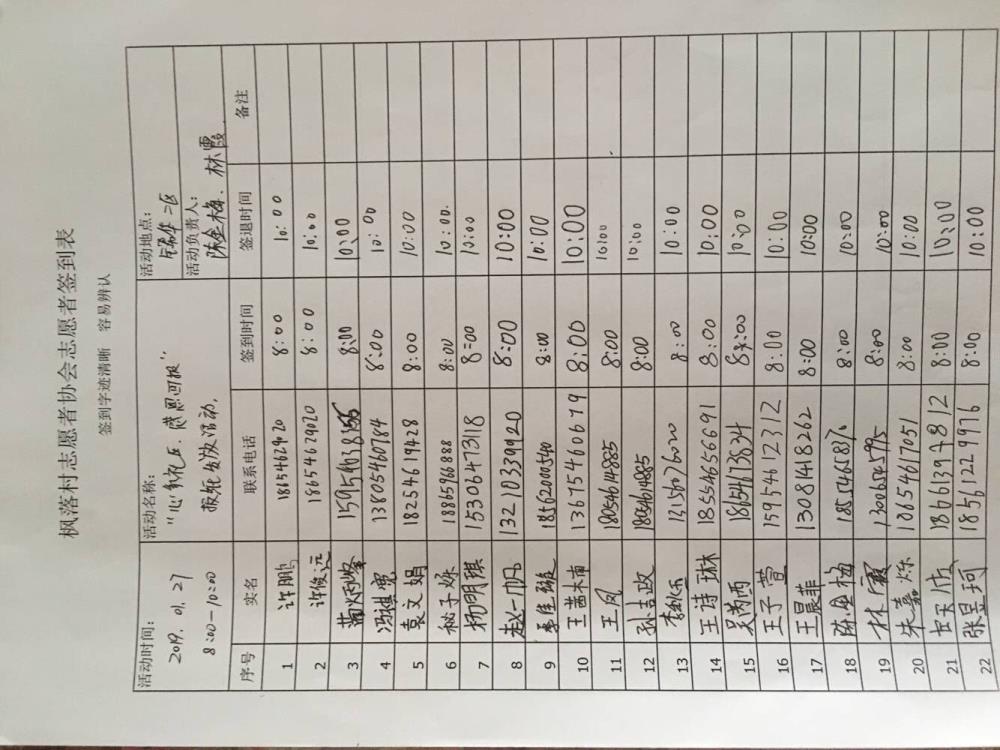 枫落村志愿者协会志愿者签到表
签到字迹清晰 容易辨认
活动时间： 活动名称： 活动地点：
2019.01.27 "心系 感恩回报" 锦华二区
8:00—10:00 报纸发放活动. 活动负责人：
陈金梅、林霞
序号 实名 联系电话 签到时间 签退时间 备注
1 许鹏 8:00 10:00
2 许俊远 18654629020 8:00 10:00
3 8:00 10:00
4 冯祺雯 13805460784 8:00 10:00
5 袁文娟 18254619428 8:00 10:00
6 秘子烁 18865966888 8:00 10:00.
7 杨明琪 15306473118 8:00 10:00
8 赵一帆 13210339920 8:00 10:00
9 李佳璇 18562000540 8:00 10:00
10 王茜木南 13675460679 8:00 10:00
11 王凤 18054614885 8:00 10:00
12 孙吉政 18054614885 8:00 10:00
13 8:00 10:00
14 王诗琳 18554656691 8:00 10:00
15 吴芮西 18654673834 8:00 10:00
16 王子萱 15954612312 8:00 10:00
17 王晨菲 13081418262 8:00 10:00
18 陈金梅 8:00 10:00
19 林霞 13006545995 8:00 10:00
20 朱嘉烁 8:00 10:00
21 18661394812 8:00 10:00
22 张昱珂 18561229976 8:00 10:00